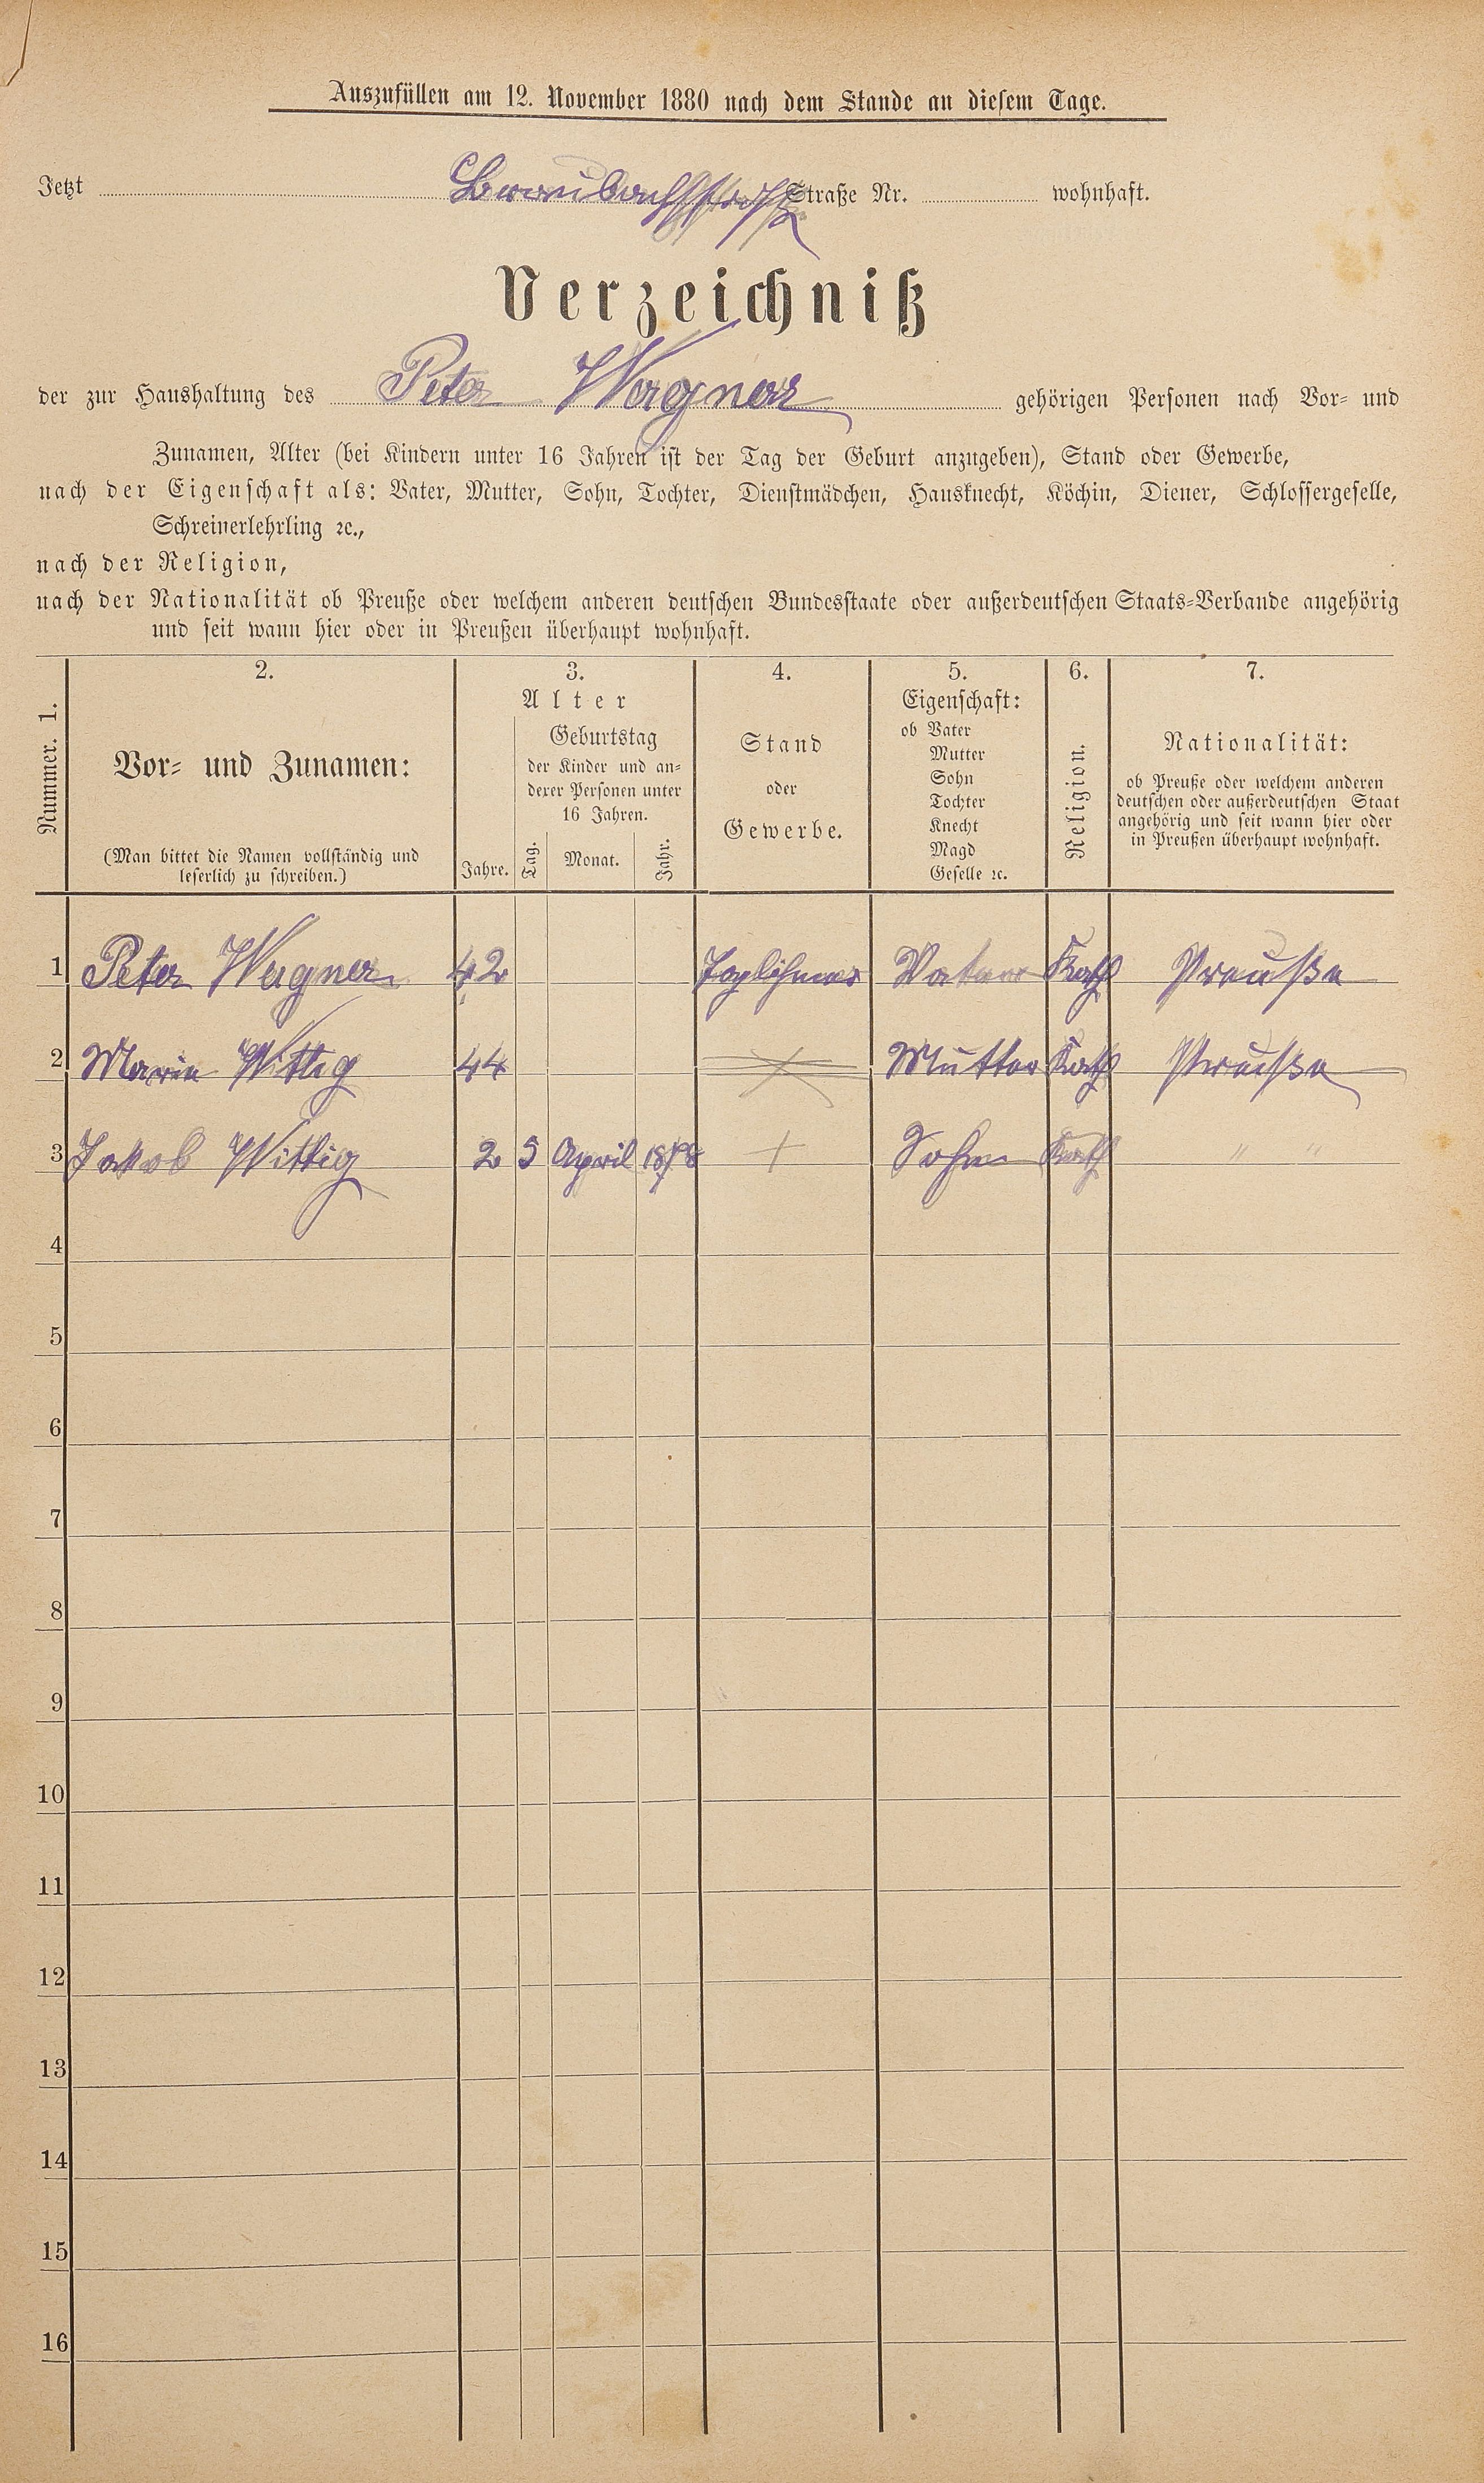 Auszufüllen am 12. November 1880 nach dem Stande an diesem Tage.
Jetzt Straße Nr. wohnhaft.
Verzeichniß
der zur Haushaltung des Peter Wagner gehörigen Personen nach Vor- und
Zunamen, Alter (bei Kindern unter 16 Jahren ist der Tag der Geburt anzugeben), Stand oder Gewerbe,
nach der Eigenschaft als: Vater, Mutter, Sohn, Tochter, Dienstmädchen, Hausknecht, Köchin, Diener, Schlossergeselle,
Schreinerlehrling ꝛc.,
nach der Religion,
nach der Nationalität ob Preuße oder welchem anderen deutschen Bundesstaate oder außerdeutschen Staats-Verbande angehörig
und seit wann hier oder in Preußen überhaupt wohnhaft.
Nummer. 1.
2.
Vor- und Zunamen:
(Man bittet die Namen vollständig und
leserlich zu schreiben.)
3.
Alter
Jahre.
Geburtstag
der Kinder und an-
derer Personen unter
16 Jahren.
Tag. Monat. Jahr.
4.
Stand
oder
Gewerbe.
5.
Eigenschaft:
ob Vater
Mutter
Sohn
Tochter
Knecht
Magd
Geselle ꝛc.
6.
Religion.
7.
Nationalität:
ob Preuße oder welchem anderen
deutschen oder außerdeutschen Staat
angehörig und seit wann hier oder
in Preußen überhaupt wohnhaft.
1 Peter Wagner 42 Taglöhner Vater Kath Preuße
2 Maria Wittig 44 Mutter Kath Preuße
3 Jakob Wittig 2 5 April 1878 + Sohn Kath " "
4
5
6
7
8
9
10
11
12
13
14
15
16